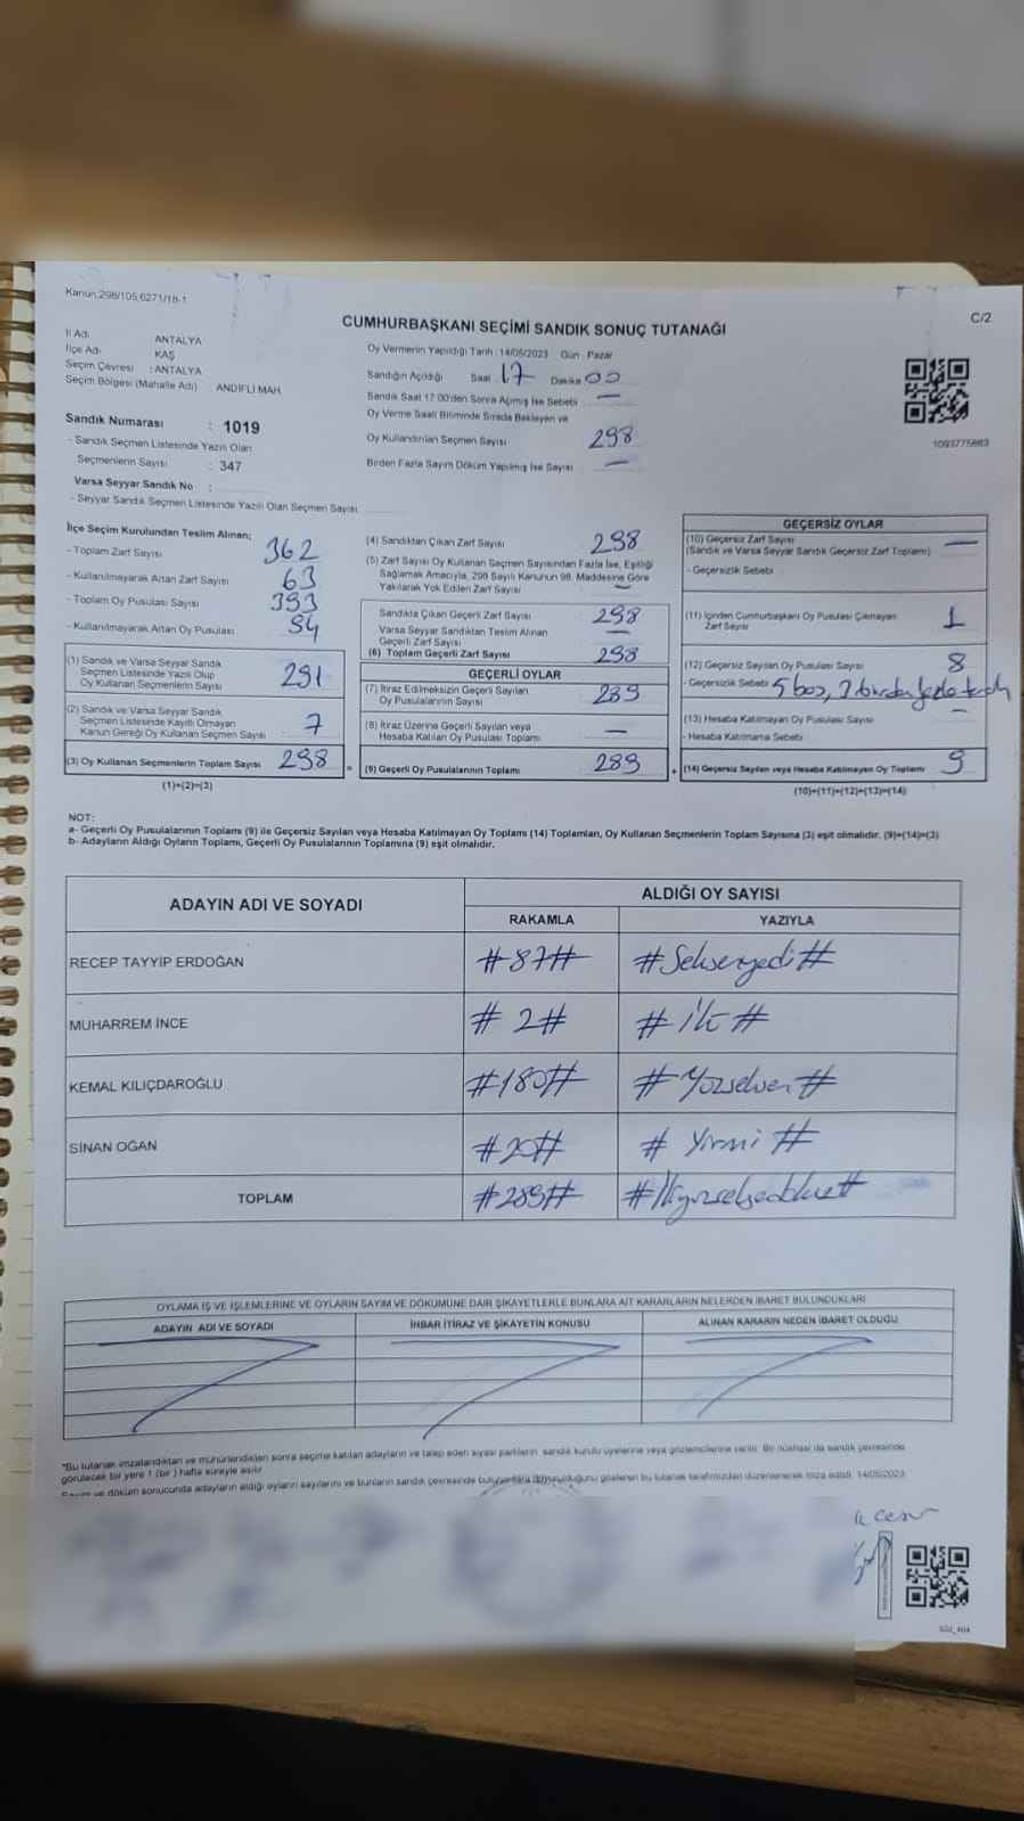 Kanun.298/105,6271/18-1
C/2
CUMHURBAŞKANI SEÇİMİ SANDIK SONUÇ TUTANAĞI
İl Adı ANTALYA
İlçe Adı KAŞ
Seçim Çevresi : ANTALYA
Seçim Bölgesi (Mahalle Adı) : ANDİFLİ MAH.
Sandık Numarası : 1019
- Sandık Seçmen Listesinde Yazılı Olan
Seçmenlerin Sayısı : 347
Varsa Seyyar Sandık No :
- Seyyar Sandık Seçmen Listesinde Yazılı Olan Seçmen Sayısı
Oy Vermenin Yapıldığı Tarih : 14/05/2023 Gün : Pazar
Sandığın Açıldığı Saat 17 Dakika 00
Sandık Saat 17.00'den Sonra Açılmış İse Sebebi —
Oy Verme Saati Bitiminde Sırada Bekleyen ve
Oy Kullandırılan Seçmen Sayısı 298
Birden Fazla Sayım Döküm Yapılmış İse Sayısı —
1093775883
İlçe Seçim Kurulundan Teslim Alınan;
- Toplam Zarf Sayısı 362
- Kullanılmayarak Artan Zarf Sayısı 63
- Toplam Oy Pusulası Sayısı 393
- Kullanılmayarak Artan Oy Pusulası 94
(1) Sandık ve Varsa Seyyar Sandık
Seçmen Listesinde Yazılı Olup
Oy Kullanan Seçmenlerin Sayısı 291
(2) Sandık ve Varsa Seyyar Sandık
Seçmen Listesinde Kayıtlı Olmayan
Kanun Gereği Oy Kullanan Seçmen Sayısı 7
(3) Oy Kullanan Seçmenlerin Toplam Sayısı 298 =
(1)+(2)=(3)
(4) Sandıktan Çıkan Zarf Sayısı 298
(5) Zarf Sayısı Oy Kullanan Seçmen Sayısından Fazla İse, Eşitliği
Sağlamak Amacıyla, 298 Sayılı Kanunun 98. Maddesine Göre
Yakılarak Yok Edilen Zarf Sayısı —
Sandıkta Çıkan Geçerli Zarf Sayısı 298
Varsa Seyyar Sandıktan Teslim Alınan
Geçerli Zarf Sayısı —
(6) Toplam Geçerli Zarf Sayısı 298
GEÇERLİ OYLAR
(7) İtiraz Edilmeksizin Geçerli Sayılan
Oy Pusulalarının Sayısı 289
(8) İtiraz Üzerine Geçerli Sayılan veya
Hesaba Katılan Oy Pusulası Toplamı —
(9) Geçerli Oy Pusulalarının Toplamı 289 +
GEÇERSİZ OYLAR
(10) Geçersiz Zarf Sayısı —
(Sandık ve Varsa Seyyar Sandık Geçersiz Zarf Toplamı)
- Geçersizlik Sebebi
(11) İçinden Cumhurbaşkanı Oy Pusulası Çıkmayan
Zarf Sayısı 1
(12) Geçersiz Sayılan Oy Pusulası Sayısı 8
- Geçersizlik Sebebi 5 boş, 3 birden fazla
(13) Hesaba Katılmayan Oy Pusulası Sayısı —
- Hesaba Katılmama Sebebi
(14) Geçersiz Sayılan veya Hesaba Katılmayan Oy Toplamı 9
(10)+(11)+(12)+(13)=(14)
NOT:
a- Geçerli Oy Pusulalarının Toplamı (9) ile Geçersiz Sayılan veya Hesaba Katılmayan Oy Toplamı (14) Toplamları, Oy Kullanan Seçmenlerin Toplam Sayısına (3) eşit olmalıdır. (9)+(14)=(3)
b- Adayların Aldığı Oyların Toplamı, Geçerli Oy Pusulalarının Toplamına (9) eşit olmalıdır.
ADAYIN ADI VE SOYADI
ALDIĞI OY SAYISI
RAKAMLA YAZIYLA
RECEP TAYYİP ERDOĞAN #87# #Seksenyedi#
MUHARREM İNCE #2# #İki#
KEMAL KILIÇDAROĞLU #180# #Yüzseksen#
SİNAN OĞAN #20# #Yirmi#
TOPLAM #289# #İkiyüzseksendokuz#
OYLAMA İŞ VE İŞLEMLERİNE VE OYLARIN SAYIM VE DÖKÜMÜNE DAİR ŞİKAYETLERLE BUNLARA AİT KARARLARIN NELERDEN İBARET BULUNDUKLARI
ADAYIN ADI VE SOYADI İHBAR İTİRAZ VE ŞİKAYETİN KONUSU ALINAN KARARIN NEDEN İBARET OLDUĞU
"Bu tutanak imzalandıktan ve mühürlendikten sonra seçime katılan adayların ve talep eden siyasi partilerin, sandık kurulu üyelerine veya gözlemcilerine verilir. Bir nüshası da sandık çevresinde
görülecek bir yere 1 (bir) hafta süreyle asılır.
Sayım ve döküm sonucunda adayların aldığı oyların sayılarını ve bunların sandık çevresinde gösteren bu tutanak tarafımızdan düzenlenerek imza edildi. 14/05/2023